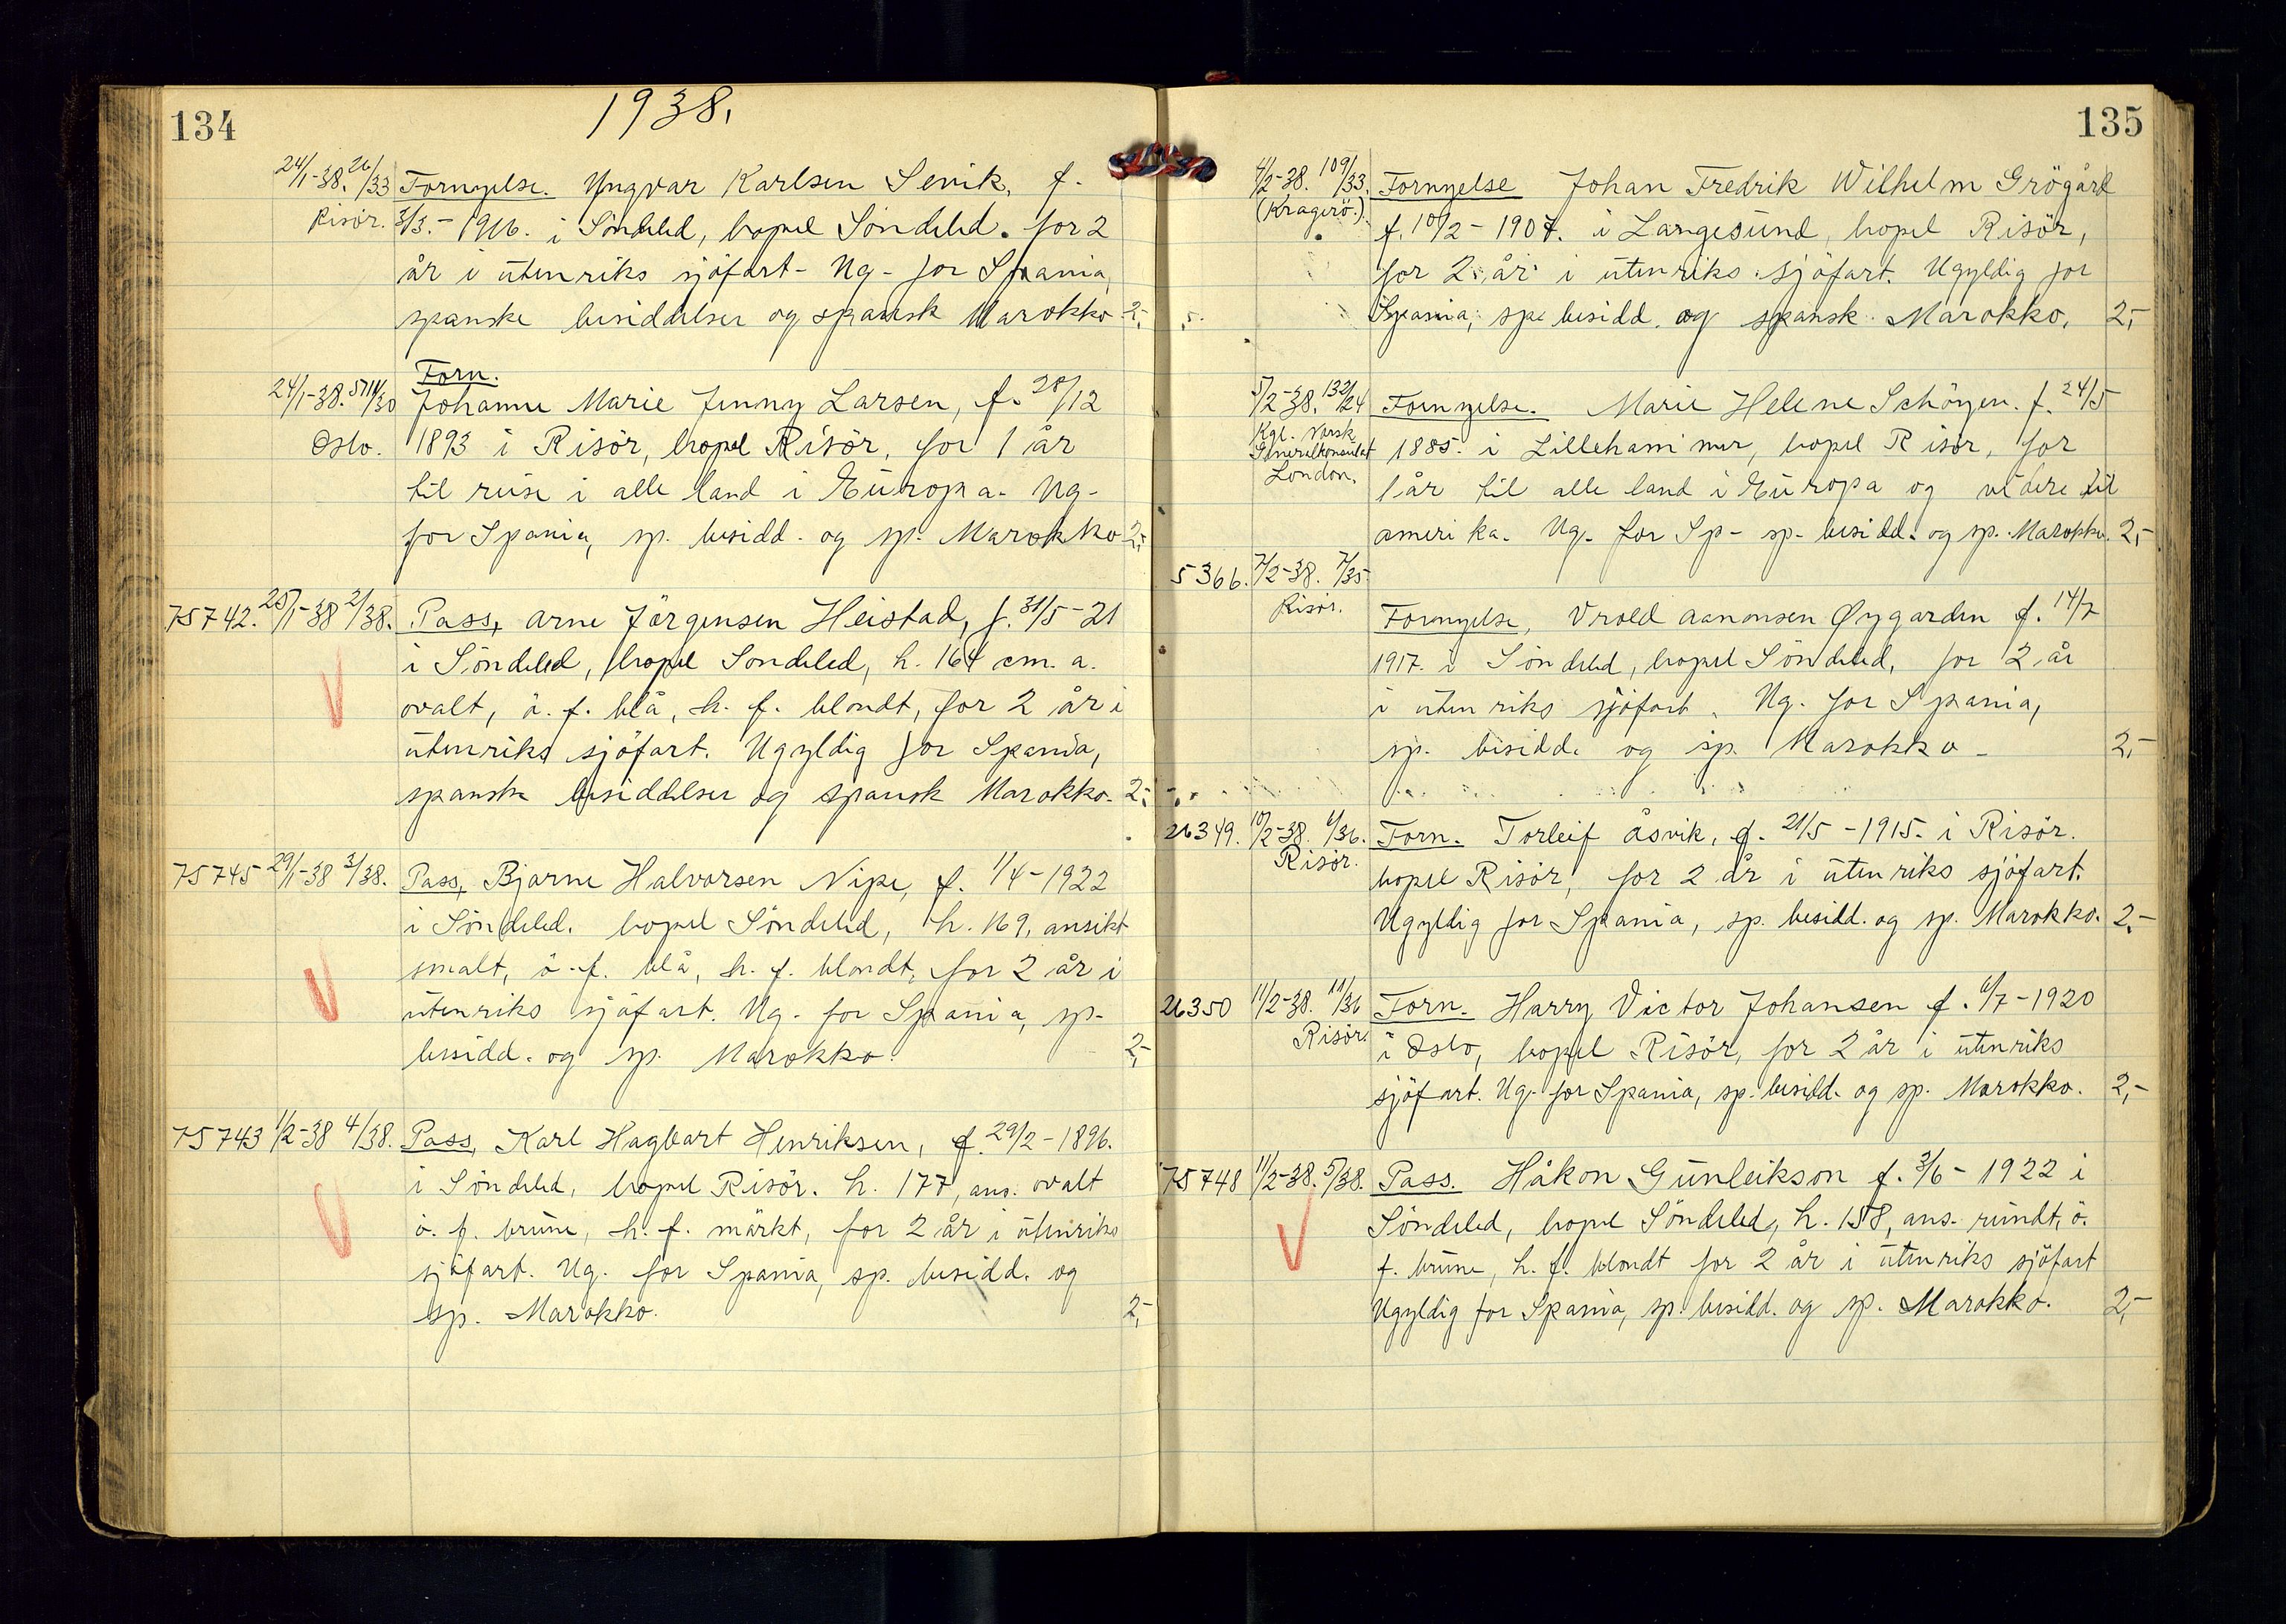 134
1938.
24/1-38. 26/33 Fornyelse. Yngvar Karlsen Sevik, f.
Risör. 3/3.- 1916. i Söndeled, bopel Söndeled. for 2
år i utenriks sjöfart - Ug- for Spania,
spanske besiddelser og spansk Marokko 2,-
Forn.
24/1-38. 5711/30 Johanne Marie Jenny Larsen, f. 28/12
Oslo. 1893 i Risör, bopel Risör, for 1 år
til reise i alle land i Europa. Ug-
for Spania, sp. besidd. og sp. Marokko 2,-
75742. 25/1-38 2/38. Pass, Arne Jörgensen Heistad, f. 31/5-21
i Söndeled, bopel Söndeled, h. 164 cm. a.
ovalt, ö. f. blå, h. f. blondt, for 2 år i
utenriks sjöfart. Ugyldig for Spania,
spanske besiddelser og spansk Marokko. 2,-
75745 29/1-38 3/38. Pass, Bjarne Halvorsen Nipe, f. 1/4-1922
i Söndeled. bopel Söndeled, h. 169, ansikt
smalt, ö. f. blå, h. f. blondt, for 2 år i
utenriks sjöfart. Ug- for Spania, sp-
besidd. og sp. Marokko. 2,-
75743 1/2-38 4/38. Pass, Karl Hagbart Henriksen, f. 29/2-1896.
i Söndeled, bopel Risör. h. 177, ans. ovalt
ö. f. brune, h. f. mörkt, for 2 år i utenriks
sjöfart. Ug. for Spania, sp. besidd. og
sp. Marokko. 2,-
135
4/2-38. 109/33. Fornyelse Johan Fredrik Wilhelm Grögård
(Kragerö.) f. 10/2-1907. i Langesund, bopel Risör,
for 2 år i utenriks sjöfart. Ugyldig for
Spania, sp. besidd. og spansk Marokko. 2,-
5/2-38. 132/24 Fornyelse. Marie Helene Schöyen. f. 24/5
Kgl. Norsk
Generalkonsulat 1885. i Lillehammer, bopel Risör, for
London. 1 år til alle land i Europa og videre til
amerika. Ug. for Sp- sp- besidd. og sp. Marokko. 2,-
5366. 7/2-38. 7/35.
Risör. Fornyelse, Vrold Aanonsen Øygarden f. 14/7
1917. i Söndeled, bopel Söndeled, for 2 år
i utenriks sjöfart. Ug. for Spania,
sp. besidd. og sp. Marokko - 2,-
26349. 10/2-38. 6/36. Forn. Torleif Åsvik, f. 21/5-1915. i Risör.
Risör. bopel Risör, for 2 år i utenriks sjöfart.
Ugyldig for Spania, sp. besidd. og sp. Marokko. 2,-
26350 11/2-38. 11/36 Forn. Harry Victor Johansen f. 6/7-1920
Risör. i Oslo, bopel Risör, for 2 år i utenriks
sjöfart. Ug- for Spania, sp. besidd. og sp. Marokko. 2,-
75748 11/2-38. 5/38. Pass. Håkon Gunleikson f. 3/6-1922 i
Söndeled, bopel Söndeled, h. 158, ans. rundt, ö.
f. brune, h. f. blondt for 2 år i utenriks sjöfart
Ugyldig for Spania, sp. besidd. og sp. Marokko. 2,-